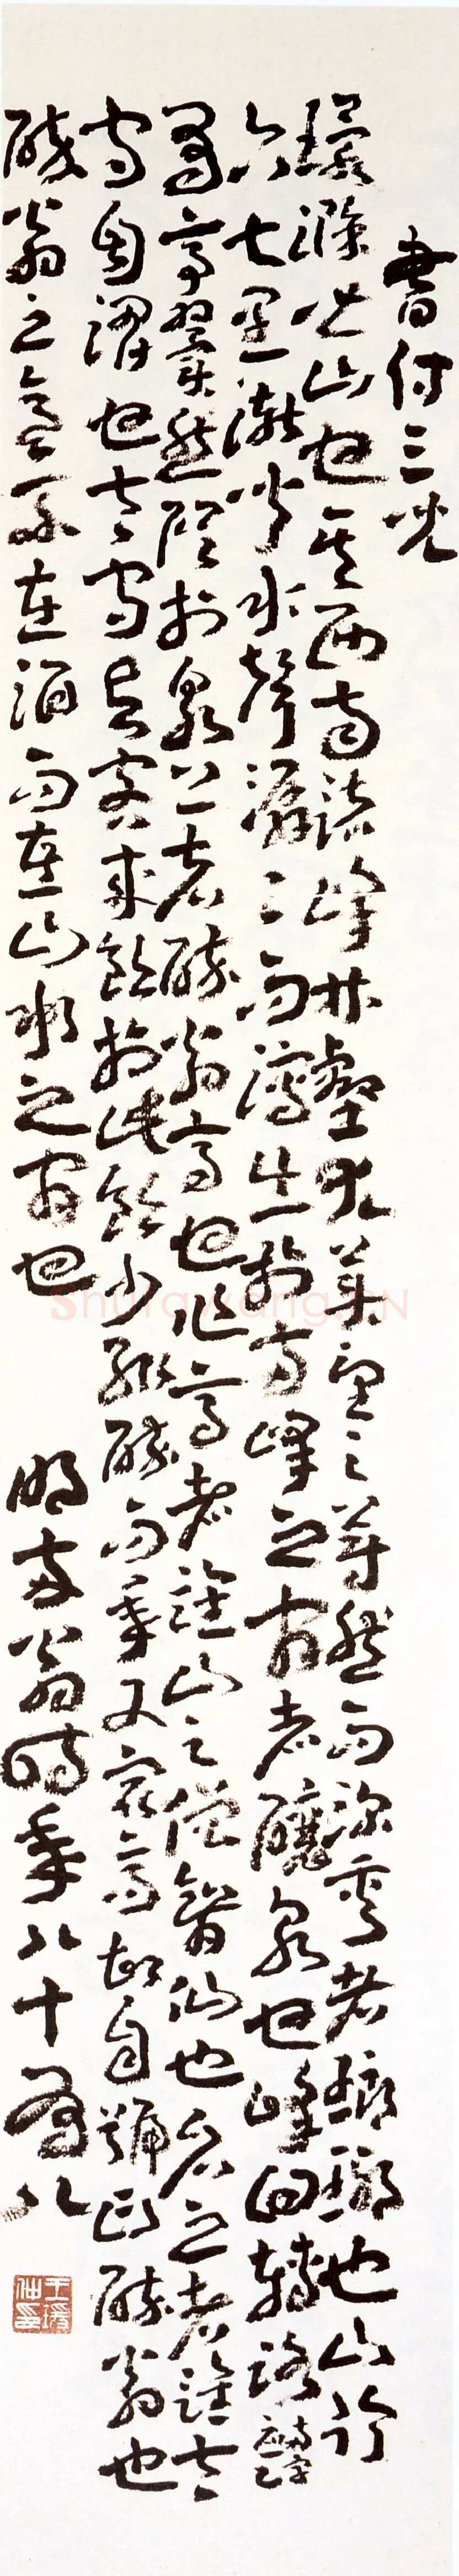 書付三兒
環滁皆山也其西南諸峰林壑尤美望之蔚然而深秀者瑯琊也山行
六七里漸聞水聲潺〻而瀉出於兩峰之間者釀泉也峰回轉路
有亭翼然臨於泉上者醉翁亭也作亭者誰山之僧智仙也名之者誰太
守自謂也太守與客來飲於此飲少輒醉而年又最高故自號曰醉翁也
醉翁之意不在酒而在山水之間也 明兩翁時年八十有八
王瑗仲印